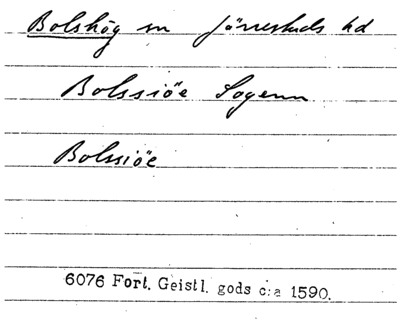 Bolshög sn Järrestads hd
Bolssiöe Sogenn
Bolssiöe
6076 Fort. Geistl. gods c:a 1590.